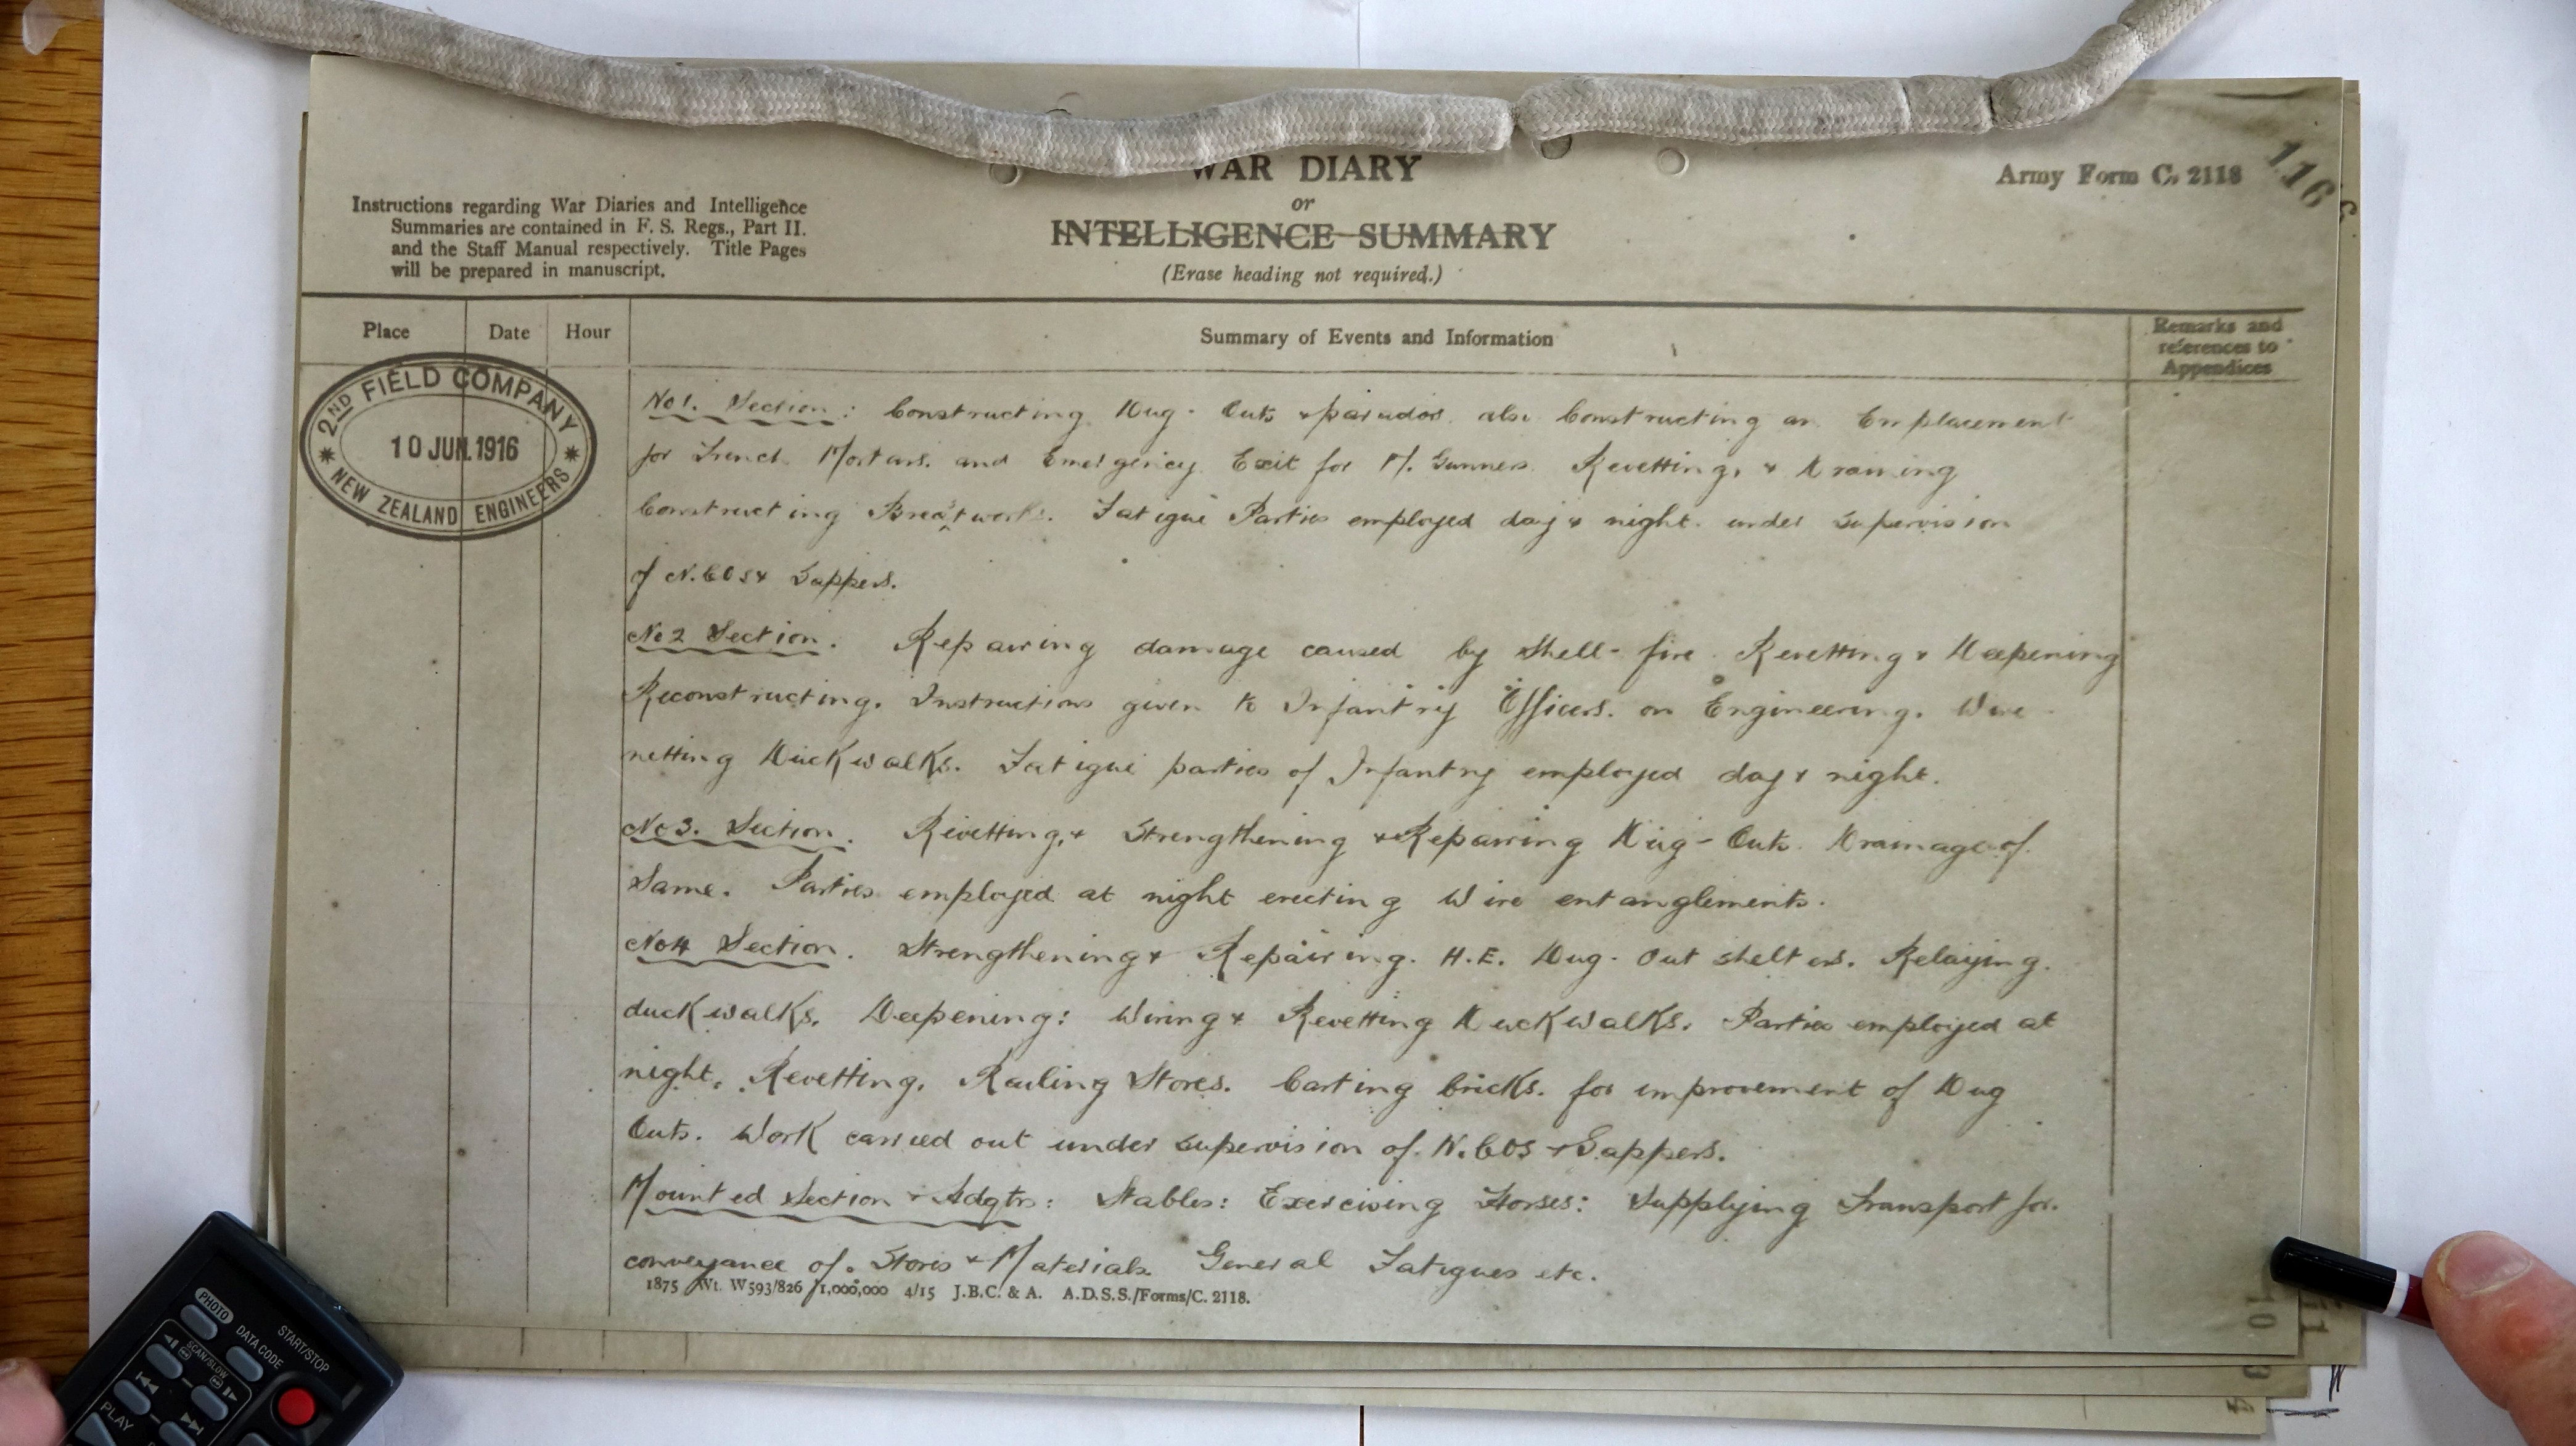 WAR DIARY
or
INTELLIGENCE SUMMARY
(Erase heading not required.)
Army Form C. 2118
116
Instructions regarding War Diaries and Intelligence
Summaries are contained in F. S. Regs., Part II.
and the Staff Manual respectively. Title Pages
will be prepared in manuscript.
Place
Date
Hour
Summary of Events and Information
Remarks and
references to
Appendices
2ND FIELD COMPANY
10 JUN. 1916
NEW ZEALAND ENGINEERS
No 1. Section: Constructing Dug-Outs & parados. also Constructing an Emplacement
for Trench Mortars. and Emergency Exit for M. Gunners. Revetting, & Draining
Constructing Breastworks. Fatigue Parties employed day & night. under supervision
of N.COs & Sappers.
No 2 Section. Repairing damage caused by Shell-fire. Revetting & Deepening
Reconstructing. Instructions given to Infantry Officers. on Engineering. Wire
netting Duckwalks. Fatigue parties of Infantry employed day & night.
No 3. Section. Revetting, & Strengthening & Repairing Dug-Outs. Drainage of
Same. Parties employed at night erecting Wire entanglements.
No 4 Section. Strengthening & Repairing. H.E. Dug-Out shelters. Relaying.
duckwalks. Deepening: Wiring & Revetting Duckwalks. Parties employed at
night, Revetting, Railing Stores. Carting bricks. for improvement of Dug
Outs. Work carried out under supervision of. N.COs & Sappers.
Mounted Section & Hdqtrs: Stables: Exercising Horses: Supplying Transport for.
conveyance of. Stores & Materials. General Fatigues etc.
1875 Wt. W593/826 1,000,000 4/15 J.B.C. & A. A.D.S.S./Forms/C. 2118.
PHOTO
DATA CODE
START/STOP
SCAN/SLOW
PLAY
10